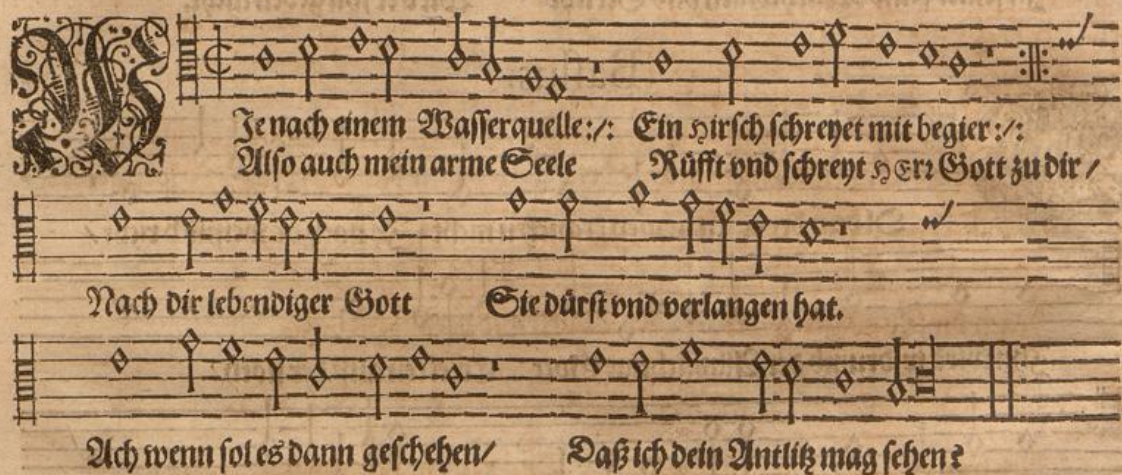 WJe nach einem Wasserquelle :/: Ein Hirsch schreyet mit begier :/:
Also auch mein arme Seele Rüfft vnd schreyt HErr Gott zu dir /
Nach dir lebendiger Gott Sie dürst vnd verlangen hat.
Ach wenn sol es dann geschehen / Daß ich dein Antlitz mag sehen?